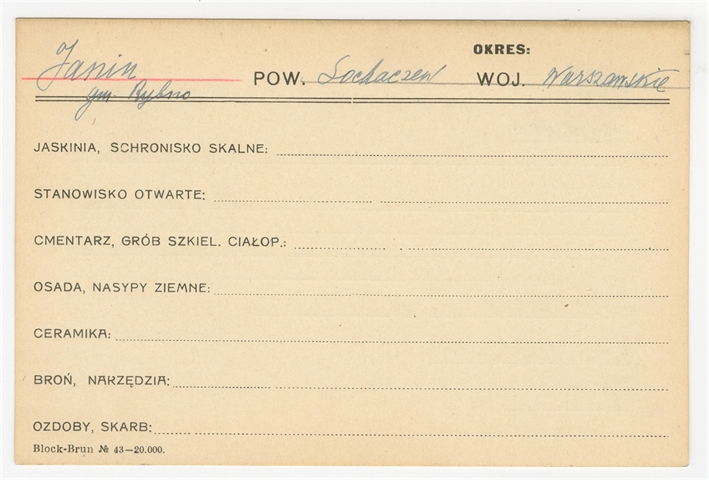 OKRES:
Janin POW. Sochaczew WOJ. Warszawskie
gm. Rybno
JASKINIA, SCHRONISKO SKALNE:
STANOWISKO OTWARTE:
CMENTARZ, GRÓB SZKIEL. CIAŁOP.:
OSADA, NASYPY ZIEMNE:
CERAMIKA:
BROŃ, NARZĘDZIA:
OZDOBY, SKARB:
Block-Brun № 43—20.000.